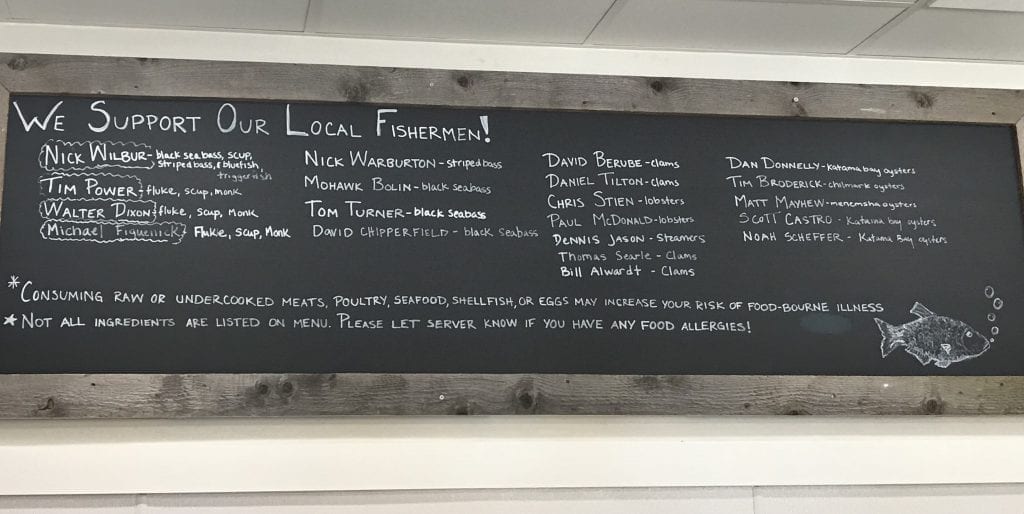 We Support Our Local Fishermen!
Nick Wilbur - black seabass, scup,
striped bass, & bluefish,
triggerfish
Tim Power - fluke, scup, monk
Walter Dixon - fluke, scup, monk
Michael Fluke, Scup, Monk
Nick Warburton - striped bass
Mohawk Bolin - black seabass
Tom Turner - black seabass
David Chipperfield - black seabass
David Berube - clams
Daniel Tilton - clams
Chris Stien - lobsters
Paul McDonald - lobsters
Dennis Jason - Steamers
Thomas Searle - Clams
Bill Alwardt - Clams
Dan Donnelly - Katama bay oysters
Tim Broderick - chilmark oysters
Matt Mayhew - menemsha oysters
Scott Castro - Katama bay oysters
Noah Scheffer - Katama Bay oysters
*Consuming raw or undercooked meats, poultry, seafood, shellfish, or eggs may increase your risk of food-bourne illness
★Not all ingredients are listed on menu. Please let server know if you have any food allergies!